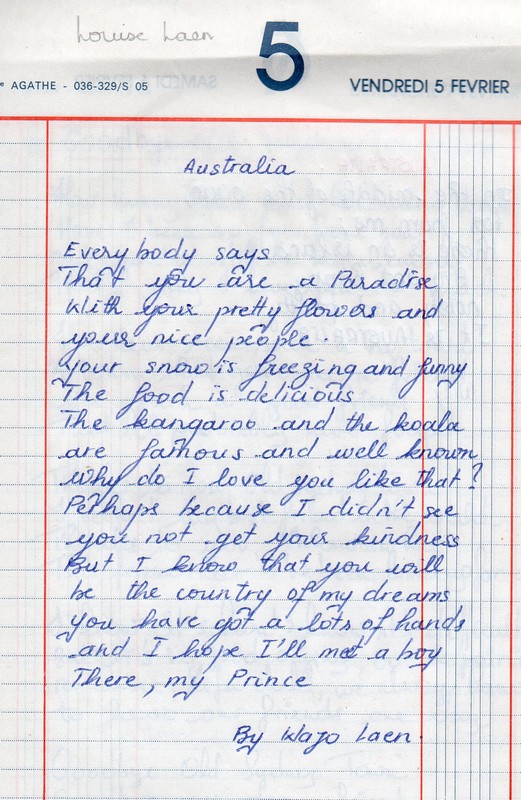 Louise Laen
5
AGATHE - 036-329/S 05
VENDREDI 5 FEVRIER
Australia
Everybody says
That you are a Paradise
With your pretty flowers and
your nice people.
Your snow is freezing and funny
The food is delicious
The kangaroo and the koala
are famous and well known
Why do I love you like that?
Perhaps because I didn't see
you not get your kindness
But I know that you will
be the country of my dreams
you have got a lots of hands
and I hope I'll met a boy
There, my Prince
By Wajo Laen.